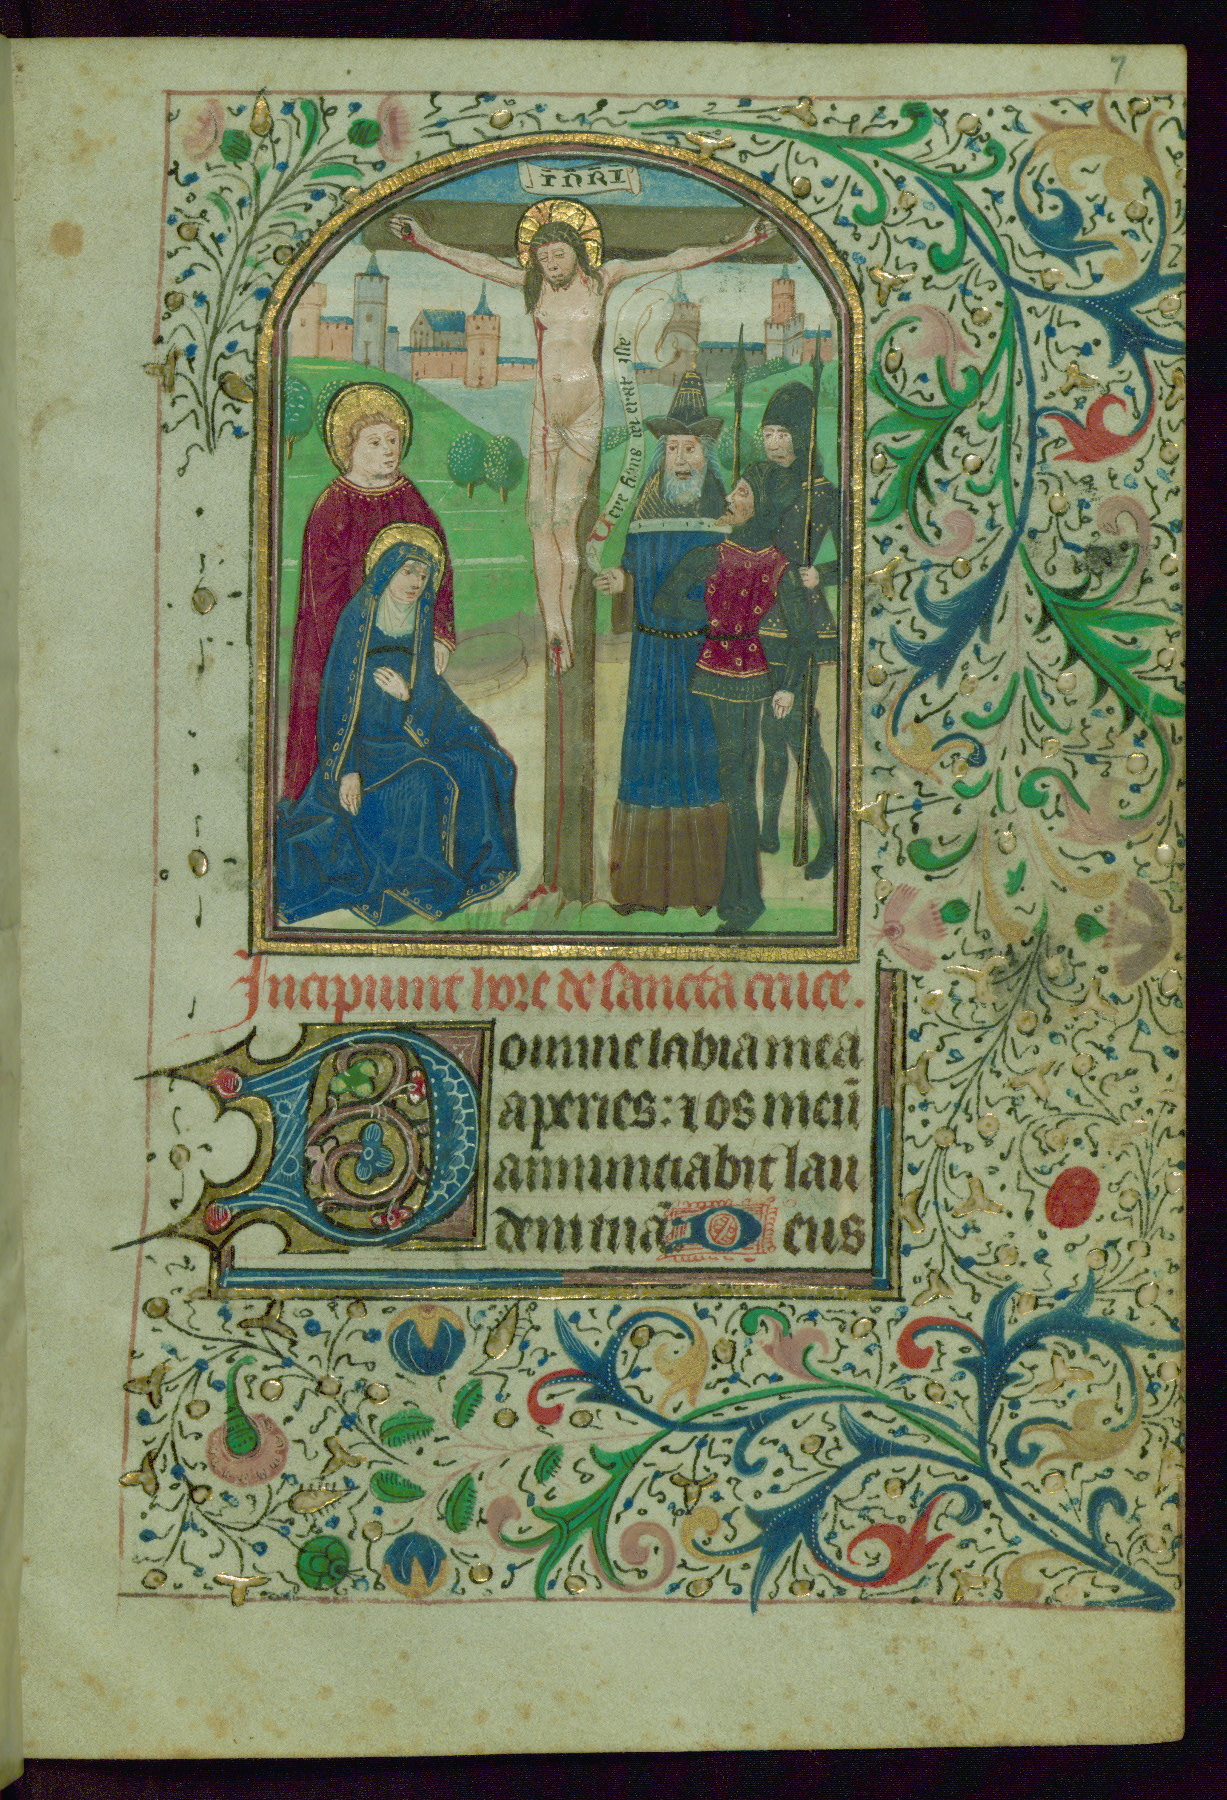 7
INRI
Vere filius dei erat iste
Incipiunt hore de sancta cruce.
Domine labia mea
aperies: ⁊ os meū
annunciabit lau
dem tuā Deus